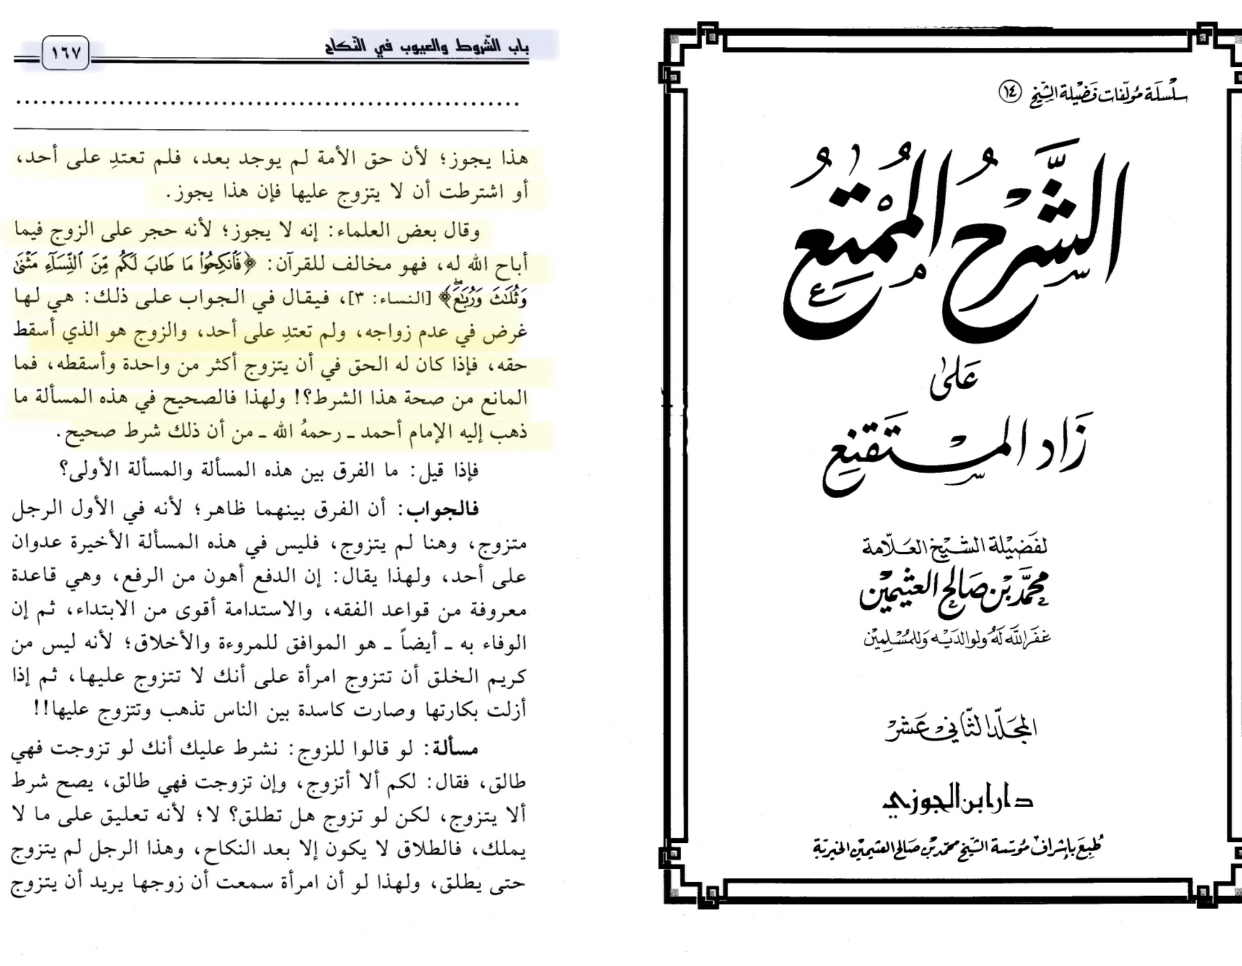 سلسلة مؤلفات فضيلة الشيخ (١٤)
الشرح الممتع
على
زاد المستقنع
لفضيلة الشيخ العلامة
محمد بن صالح العثيمين
غفر الله له ولوالديه وللمسلمين
المجلد الثاني عشر
دار ابن الجوزي
طبع بإشراف مؤسسة الشيخ محمد بن صالح العثيمين الخيرية
باب الشروط والعيوب في النكاح
١٦٧
هذا يجوز؛ لأن حق الأمة لم يوجد بعد، فلم تعتدِ على أحد،
أو اشترطت أن لا يتزوج عليها فإن هذا يجوز.
وقال بعض العلماء: إنه لا يجوز؛ لأنه حجر على الزوج فيما
أباح الله له، فهو مخالف للقرآن: ﴿فَٱنكِحُوا۟ مَا طَابَ لَكُم مِّنَ ٱلنِّسَآءِ مَثْنَىٰ
وَثُلَٰثَ وَرُبَٰعَۖ﴾ [النساء: ٣]، فيقال في الجواب على ذلك: هي لها
غرض في عدم زواجه، ولم تعتدِ على أحد، والزوج هو الذي أسقط
حقه، فإذا كان له الحق في أن يتزوج أكثر من واحدة وأسقطه، فما
المانع من صحة هذا الشرط؟! ولهذا فالصحيح في هذه المسألة ما
ذهب إليه الإمام أحمد ـ رحمهُ الله ـ من أن ذلك شرط صحيح.
فإذا قيل: ما الفرق بين هذه المسألة والمسألة الأولى؟
فالجواب: أن الفرق بينهما ظاهر؛ لأنه في الأول الرجل
متزوج، وهنا لم يتزوج، فليس في هذه المسألة الأخيرة عدوان
على أحد، ولهذا يقال: إن الدفع أهون من الرفع، وهي قاعدة
معروفة من قواعد الفقه، والاستدامة أقوى من الابتداء، ثم إن
الوفاء به ـ أيضاً ـ هو الموافق للمروءة والأخلاق؛ لأنه ليس من
كريم الخلق أن تتزوج امرأة على أنك لا تتزوج عليها، ثم إذا
أزلت بكارتها وصارت كاسدة بين الناس تذهب وتتزوج عليها!!
مسألة: لو قالوا للزوج: نشرط عليك أنك لو تزوجت فهي
طالق، فقال: لكم ألا أتزوج، وإن تزوجت فهي طالق، يصح شرط
ألا يتزوج، لكن لو تزوج هل تطلق؟ لا؛ لأنه تعليق على ما لا
يملك، فالطلاق لا يكون إلا بعد النكاح، وهذا الرجل لم يتزوج
حتى يطلق، ولهذا لو أن امرأة سمعت أن زوجها يريد أن يتزوج